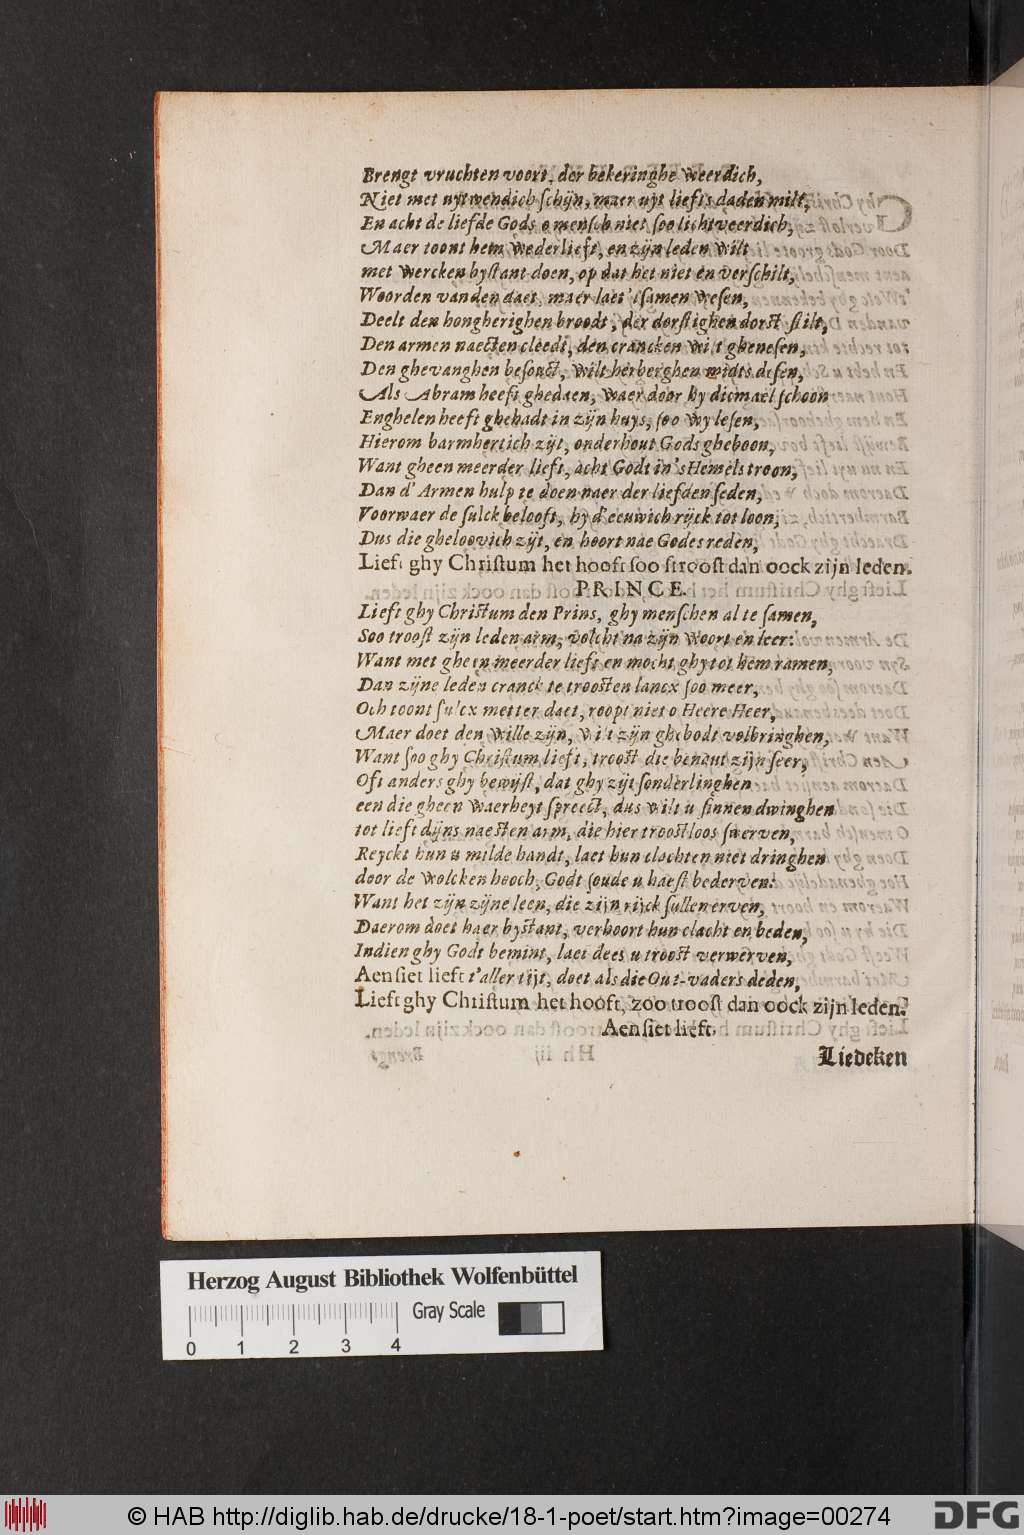 Brengt vruchten voort, der bekeringhe weerdich,
Niet met uytwendich schijn, maer uyt liefts daden milt,
En acht de liefde Gods o mensch niet soo lichtveerdich,
Maer toont hem wederlieft, en zijn leden wilt
met wercken bystant doen, op dat het niet en verschilt,
Woorden vanden daet, maer laet 't samen wesen,
Deelt den hongherighen broodt, der dorstighen dorst stilt,
Den armen naeckten cleedt, den crancken wilt ghenesen,
Den ghevanghen besonct, wilt herberghen midts desen,
Als Abram heeft ghedaen, waer door hy dicmael schoon
Enghelen heeft ghehadt in zijn huys, soo wy lesen,
Hierom barmhertich zijt, onderhout Gods gheboon,
Want gheen meerder lieft, acht Godt in 's Hemels troon,
Dan d' Armen hulp te doen naer der liefden seden,
Voorwaer de sulck belooft, hy d'eeuwich rijck tot loon,
Dus die gheloovich zijt, en hoort nae Godes reden,
Lieft ghy Christum het hooft soo troost dan oock zijn leden.
PRINCE.
Lieft ghy Christum den Prins, ghy menschen al te samen,
Soo troost zijn leden arm, volcht na zijn woort en leer:
Want met gheen meerder lieft en mocht ghy tot hem ramen,
Dan zijne leden cranck te troosten lancx soo meer,
Och toont sulcx metter daet, roopt niet o Heere Heer,
Maer doet den wille zijn, wilt zijn ghebodt volbringhen,
Want soo ghy Christum lieft, troost die benaut zijn seer,
Oft anders ghy bewijst, dat ghy zijt sonderlinghen
een die gheen waerheyt spreect, dus wilt u sinnen dwinghen
tot lieft dijns naesten arm, die hier troostloos swerven,
Reyckt hun u milde handt, laet hun clachten niet dringhen
door de wolcken hooch, Godt soude u haest bederven:
Want het zijn zijne leen, die zijn rijck sullen erven,
Daerom doet haer bystant, verhoort hun clacht en beden,
Indien ghy Godt bemint, laet dees u troost verwerven,
Aensiet lieft t'aller tijt, doet als die Out-vaders deden,
Lieft ghy Christum het hooft, zoo troost dan oock zijn leden.
Aensiet lieft.
Liedeken
Herzog August Bibliothek Wolfenbüttel
Gray Scale
0 1 2 3 4
© HAB http://diglib.hab.de/drucke/18-1-poet/start.htm?image=00274
DFG